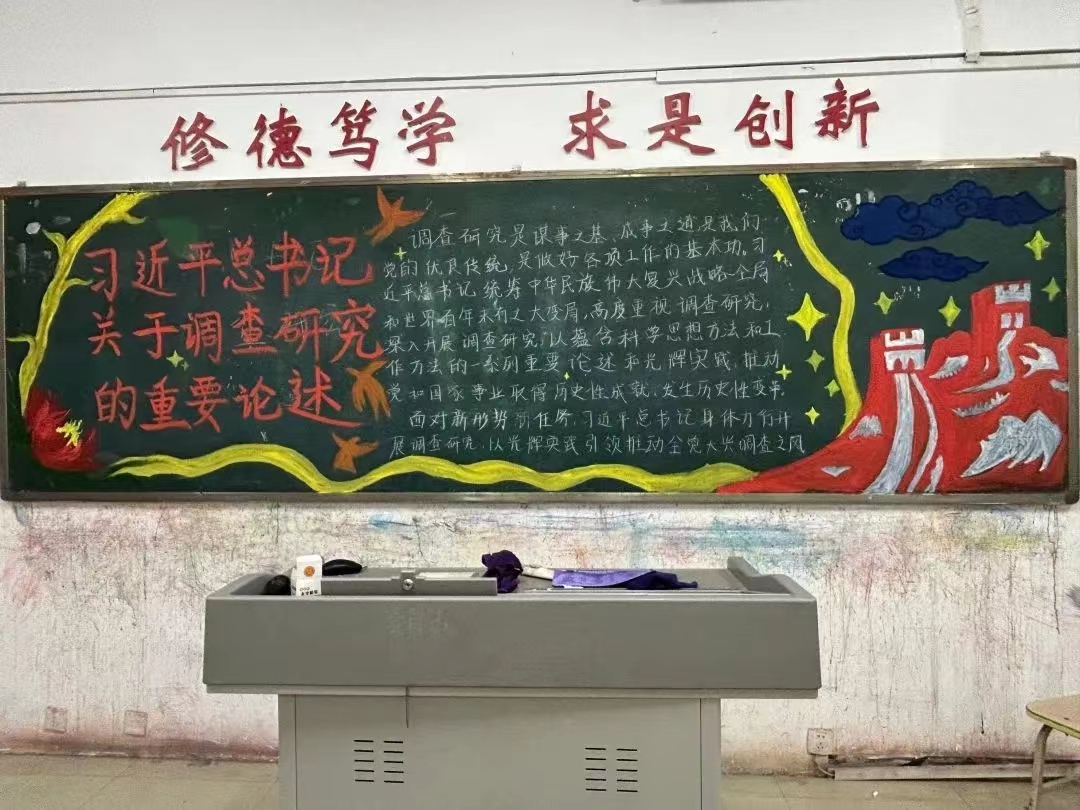 修德笃学 求是创新
习近平总书记
关于调查研究
的重要论述
调查研究是谋事之基、成事之道是我们
党的优良传统,是做好各项工作的基本功。习
近平总书记统筹中华民族伟大复兴战略全局
和世界百年未有之大变局,高度重视调查研究,
深入开展调查研究,以蕴含科学思想方法和工
作方法的一系列重要论述和光辉实践,推动
党和国家事业取得历史性成就、发生历史性变革。
面对新形势新任务,习近平总书记身体力行开
展调查研究,以光辉实践引领推动全党大兴调查之风